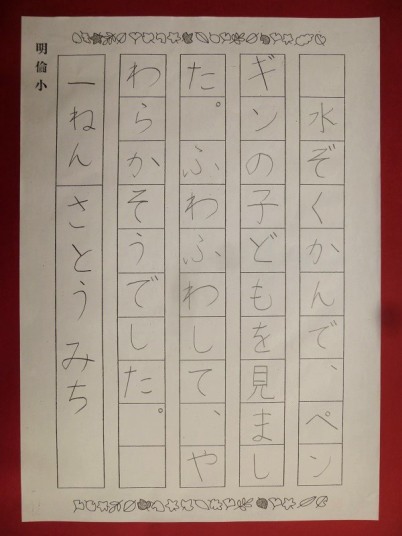 水ぞくかんで、ペン
ギンの子どもを見まし
た。ふわふわして、や
わらかそうでした。
一ねん さとう みち
明倫小